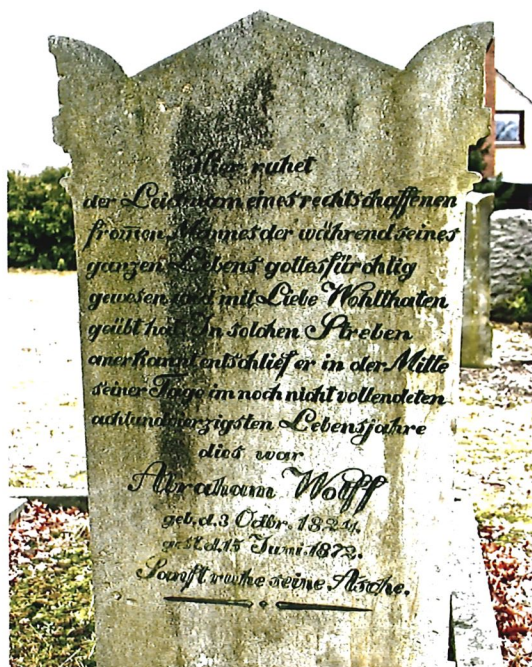 Hier ruhet
der Leichnam eines rechtschaffenen
fromen Mannes der während seines
ganzen Lebens gottesfürchtig
gewesen und mit Liebe Wohlthaten
geübt hat In solchen Streben
anerkannt entschlief er in der Mitte
seiner Tage im noch nicht vollendeten
achtundvierzigsten Lebensjahre
dies war
Abraham Wolff
geb. d. 3 Octbr. 1824.
gest. d. 15 Juni 1872.
Sanft ruhe seine Asche.